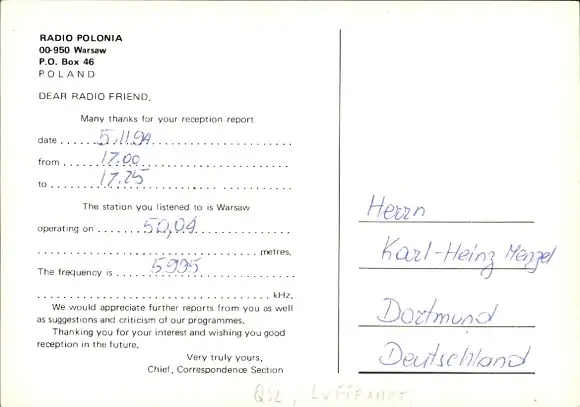 RADIO POLONIA
00-950 Warsaw
P.O. Box 46
POLAND
DEAR RADIO FRIEND,
Many thanks for your reception report
date ...... 5.11.94 ......................
from ...... 17.00 ......................
to ........ 17.25 ......................
The station you listened to is Warsaw
operating on ....... 50,04 ................
........................................ metres.
The frequency is ...... 5995 ................
.......................................... kHz.
We would appreciate further reports from you as well
as suggestions and criticism of our programmes.
Thanking you for your interest and wishing you good
reception in the future.
Very truly yours,
Chief, Correspondence Section
Herrn
Karl-Heinz Menzel
Dortmund
Deutschland
QSL, LUFTFAHRT.